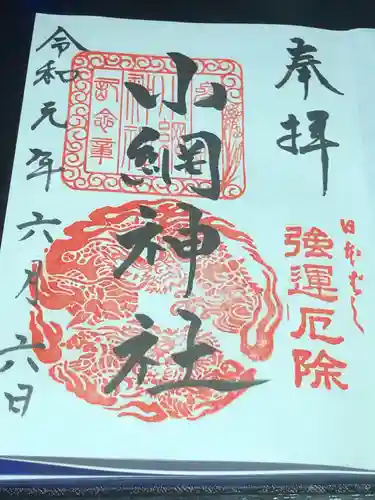 奉拝
日本ばし
強運厄除
小網神社
令和元年六月六日